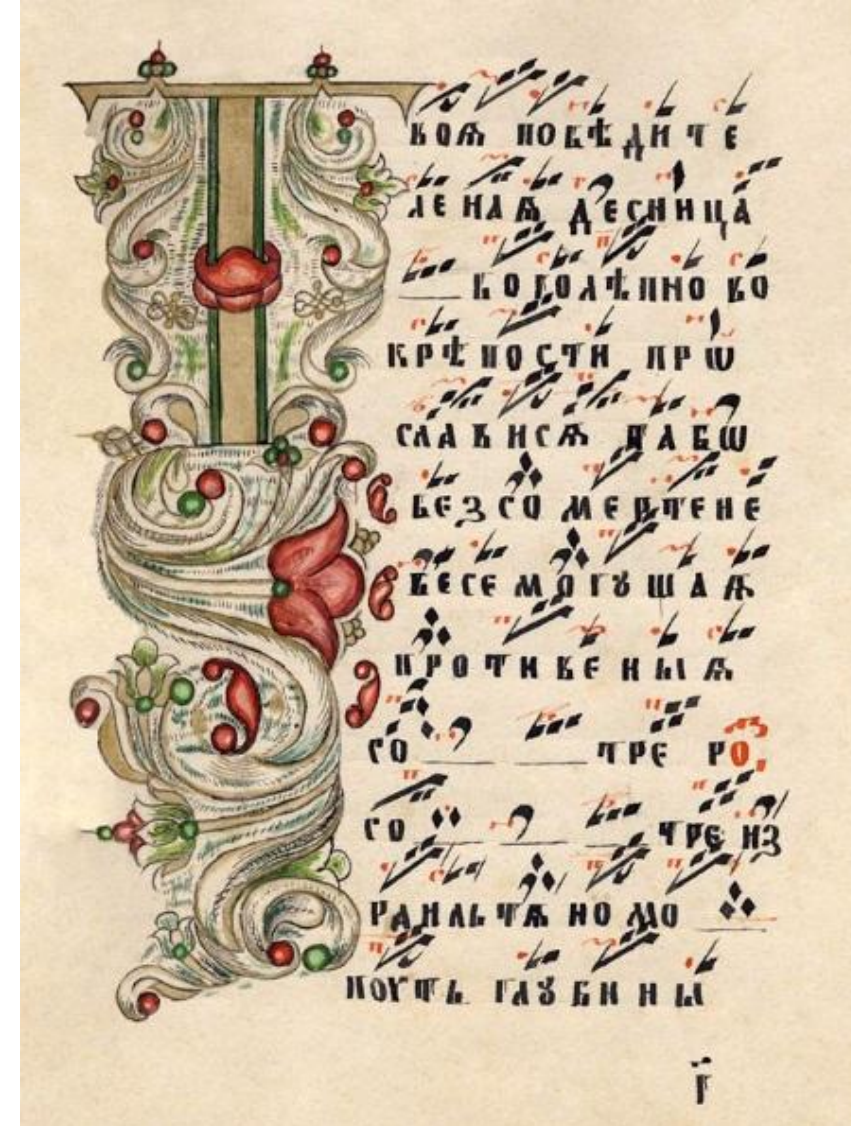 ТВОѦ ПОБѢДИТЕ
ЛЕНАѦ ДЕСНИЦА
БОГОЛѢПНО ВО
КРѢПОСТИ ПРѠ
СЛАВИСѦ ТАБѠ
БЕЗСОМЕРТЕНЕ
ВЕСЕМОГꙊЩАѦ
ПРОТИВЕНЫѦ
СО ТРЕ РО
СО ТРЕ ИЗ
РАИЛЬТѦНОМО
ПОУТЬ ГЛꙊБИНЫ
Г҃